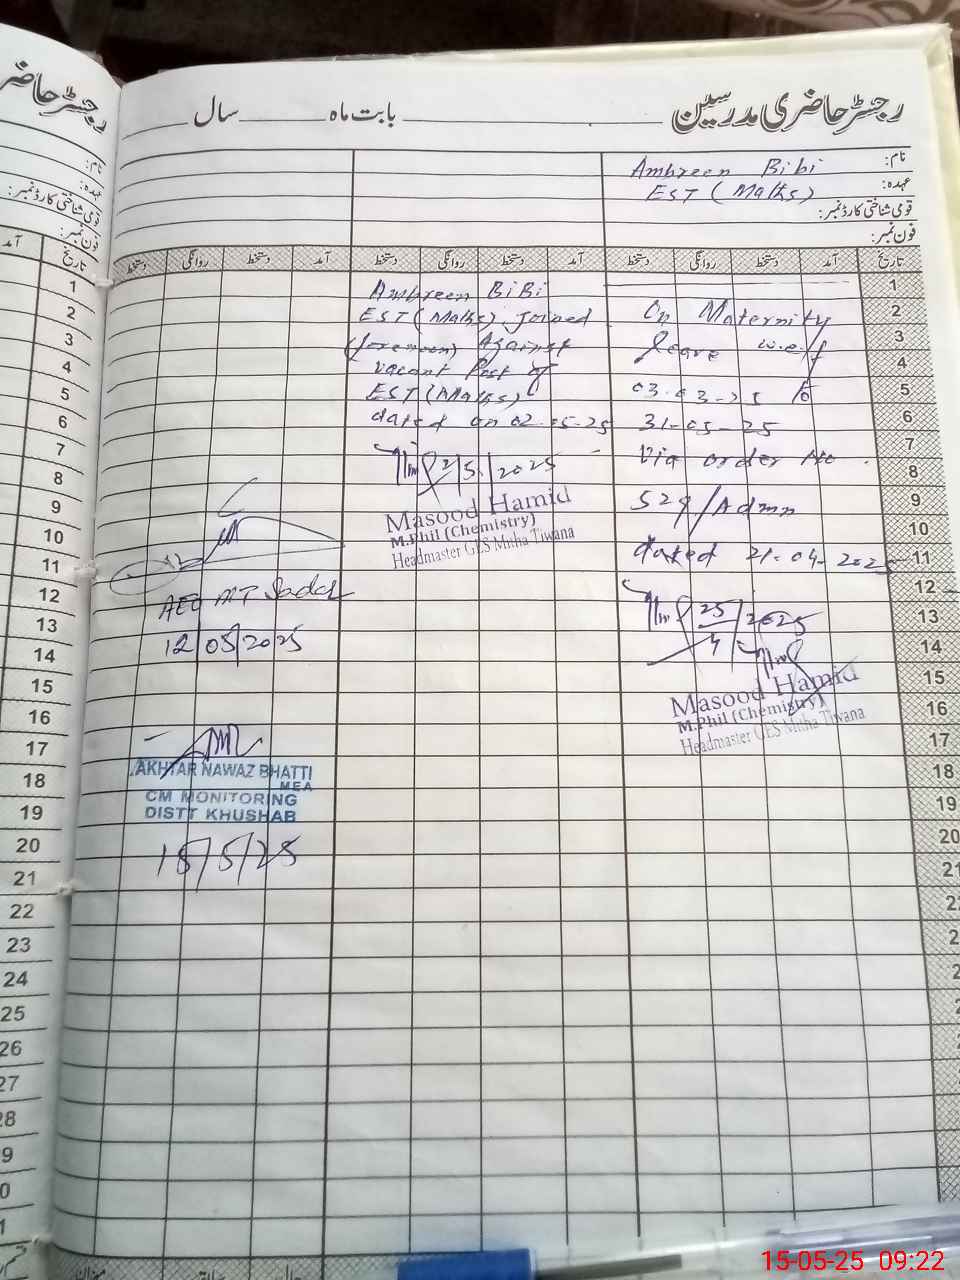 رجسٹر حاضری مدرسین ــــــ بابت ماہ ــــــ سال ــــــ
نام: Ambreen Bibi
عہدہ: EST (Maths)
قومی شناختی کارڈ نمبر:
فون نمبر:
تاریخ آمد دستخط روانگی دستخط آمد دستخط روانگی دستخط آمد دستخط روانگی دستخط
On Maternity
leave w.e.f
03-03-25 to
31-05-25
Via order No.
529/Admn
dated 21-04-2025
25/4/2025
Masood Hamid
M.Phil (Chemistry)
Headmaster GES Mitha Tiwana
Ambreen BiBi
EST (Maths) joined
(forenoon) Against
vacant Post of
EST (Maths)
dated on 02-05-25
2/5/2025
Masood Hamid
M.Phil (Chemistry)
Headmaster GES Mitha Tiwana
AEO MT Saddar
12/05/2025
AKHTAR NAWAZ BHATTI
MEA
CM MONITORING
DISTT KHUSHAB
15/5/25
1
2
3
4
5
6
7
8
9
10
11
12
13
14
15
16
17
18
19
20
21
رجسٹر حاضری
نام:
عہدہ:
قومی شناختی کارڈ نمبر:
فون نمبر:
تاریخ آمد
1
2
3
4
5
6
7
8
9
10
11
12
13
14
15
16
17
18
19
20
21
22
23
24
25
26
27
28
میزان
15-05-25 09:22